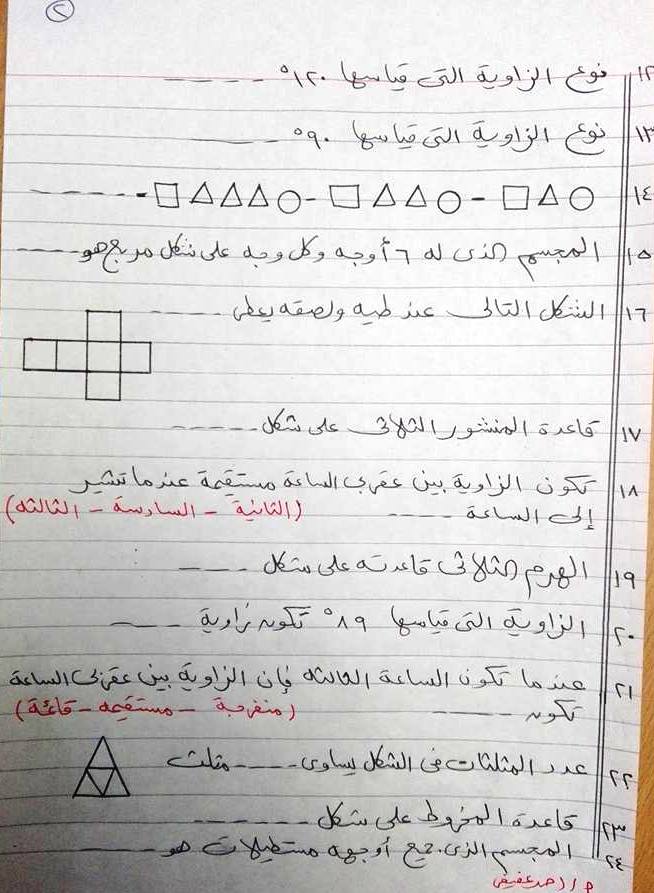 ٢
١٢ نوع الزاوية التى قياسها ١٢٠° ----
١٣ نوع الزاوية التى قياسها ٩٠° ----
١٤ ○△□ - ○△△□ - ○△△△□ - ----
١٥ المجسم الذى له ٦ أوجه وكل وجه على شكل مربع هو ----
١٦ الشكل التالى عند طيه ولصقه يعطى ----
١٧ قاعدة المنشور الثلاثى على شكل -----
١٨ تكون الزاوية بين عقربى الساعة مستقيمة عندما تشير
إلى الساعة ---- (الثانية - السادسة - الثالثه)
١٩ الهرم الثلاثى قاعدته على شكل ---
٢٠ الزاوية التى قياسها ٨٩° تكون زاوية ----
٢١ عندما تكون الساعة الثالثه فإن الزاوية بين عقربى الساعة
تكون ---- (منفرجة - مستقيمه - قائمة)
٢٢ عدد المثلثات فى الشكل يساوى ---- مثلث
٢٣ قاعدة المخروط على شكل ------
٢٤ المجسم الذى جميع أوجهه مستطيلات هو ------
أ / احمد عفيفى